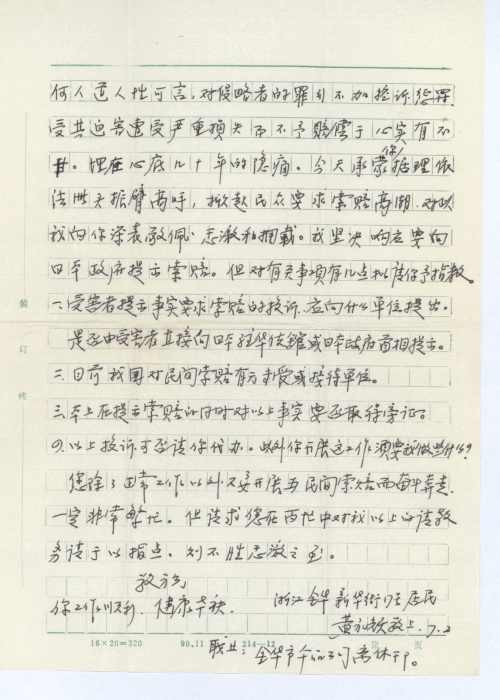 何人道人性可言，对侵略者的罪行不加控诉惩罚，
受其迫害遭受严重损失而不予赔偿于心实有不
甘。埋在心底几十年的隐痛。今天承蒙你据理依
法世无振臂高呼，掀起民众要求索赔高潮，对此
我向你深表敬佩、感激和拥戴。我坚决响应要向
日本政府提出索赔。但对有关事项有几点拟请你予指教。
一、受害者提出事实要求索赔的投诉，应向什么单位提出。
是否由受害者直接向日本驻华使馆或日本政府首相提出。
二、目前我国对民间索赔有否受或接待单位。
三、本上在提出索赔的同时对以上事实要否取得旁证？
四、以上投诉可否请你代办。此外你开展这工作须要我做些什么？
您除了正常工作以外又要开展为民间索赔而奋斗奔走，
一定非常繁忙。但请求您在百忙中对我以上的请教
务请予以指点。则不胜感激之至。
敬祝
你工作顺利、健康幸福
浙江金华新华街 居民
黄 敬上 7.2
16×20=320 90.11 214-12 页
职业：金华市 离休干部。
装
订
线